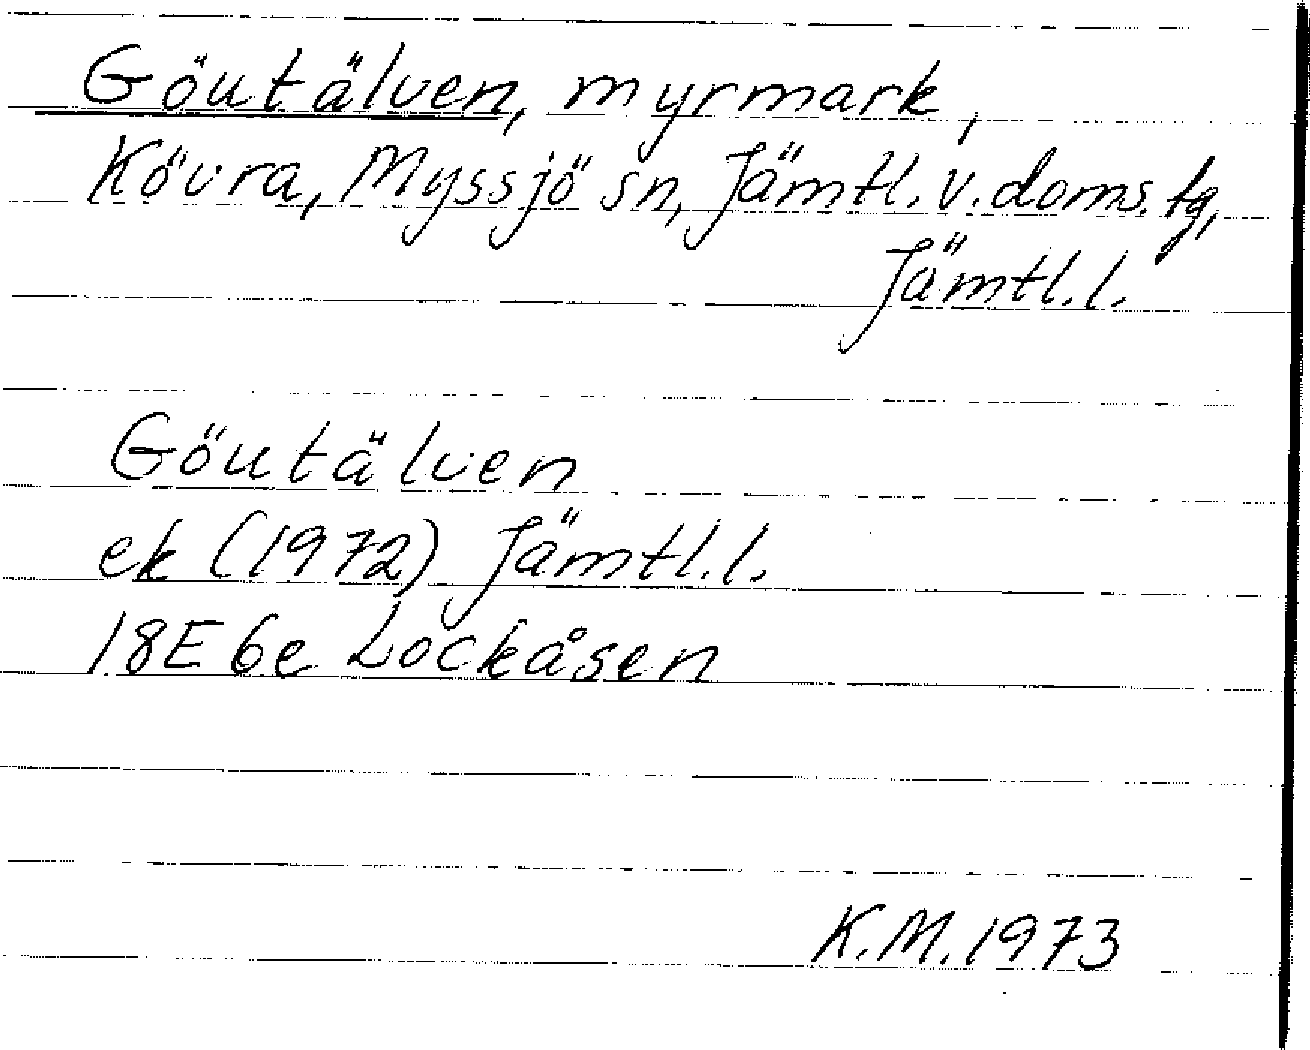 Göutälven, myrmark,
Kövra, Myssjö sn, Jämtl. v. doms. tg,
Jämtl. l.
Göutälven
ek (1972) Jämtl. l.
18E 6e Lockåsen
K. M. 1973